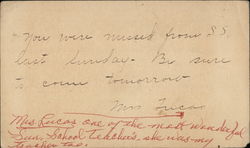 You were missed from S.S.
last Sunday. Be sure
to come tomorrow
Mrs Lucas
Mrs. Lucas one of the most wonderful
Sun. School teachers, she was my
teacher too.